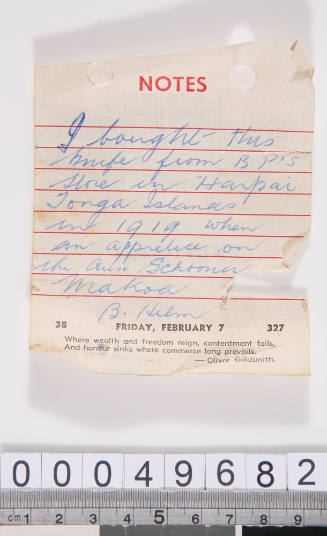 NOTES
I bought this
knife from B P's
store in Haapai
Tonga Islands
in 1919 when
an apprentice on
the Aux. Schooner
Makoa
B. Helm
38 FRIDAY, FEBRUARY 7 327
Where wealth and freedom reign, contentment fails,
And honour sinks where commerce long prevails.
— Oliver Goldsmith.
00049682
cm 1 2 3 4 5 6 7 8 9